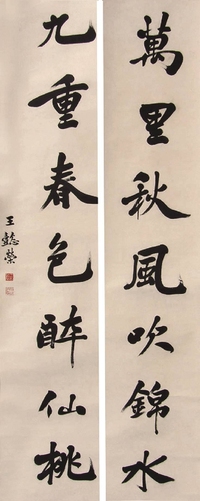 萬里秋風吹錦水
九重春色醉仙桃
王懿榮